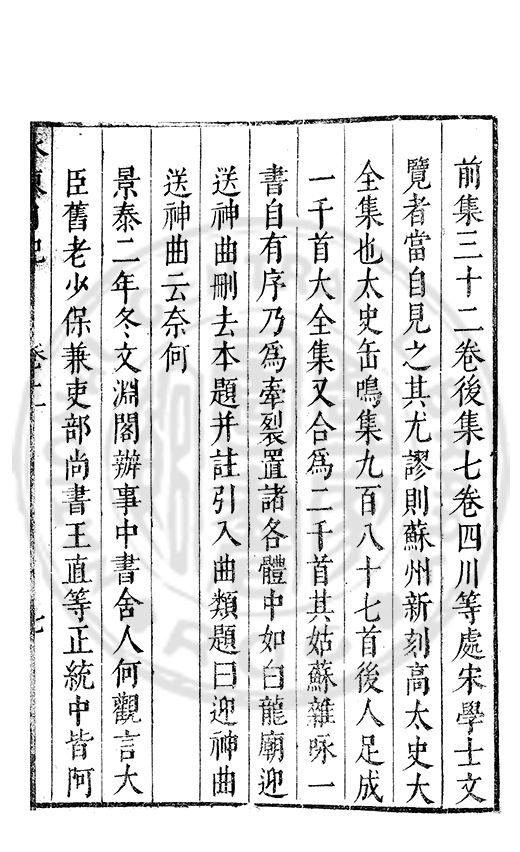 前集三十二卷後集七卷四川等處宋學士文
覽者當自見之其尤謬則蘇州新刻高太史大
全集也太史缶鳴集九百八十七首後人足成
一千首大全集又合爲二千首其姑蘇雜咏一
書自有序乃爲牽裂置諸各體中如白龍廟迎
送神曲刪去本題并註引入曲類題曰迎神曲
送神曲云奈何
景泰二年冬文淵閣辦事中書舍人何觀言大
臣舊老少保兼吏部尚書王直等正統中皆阿